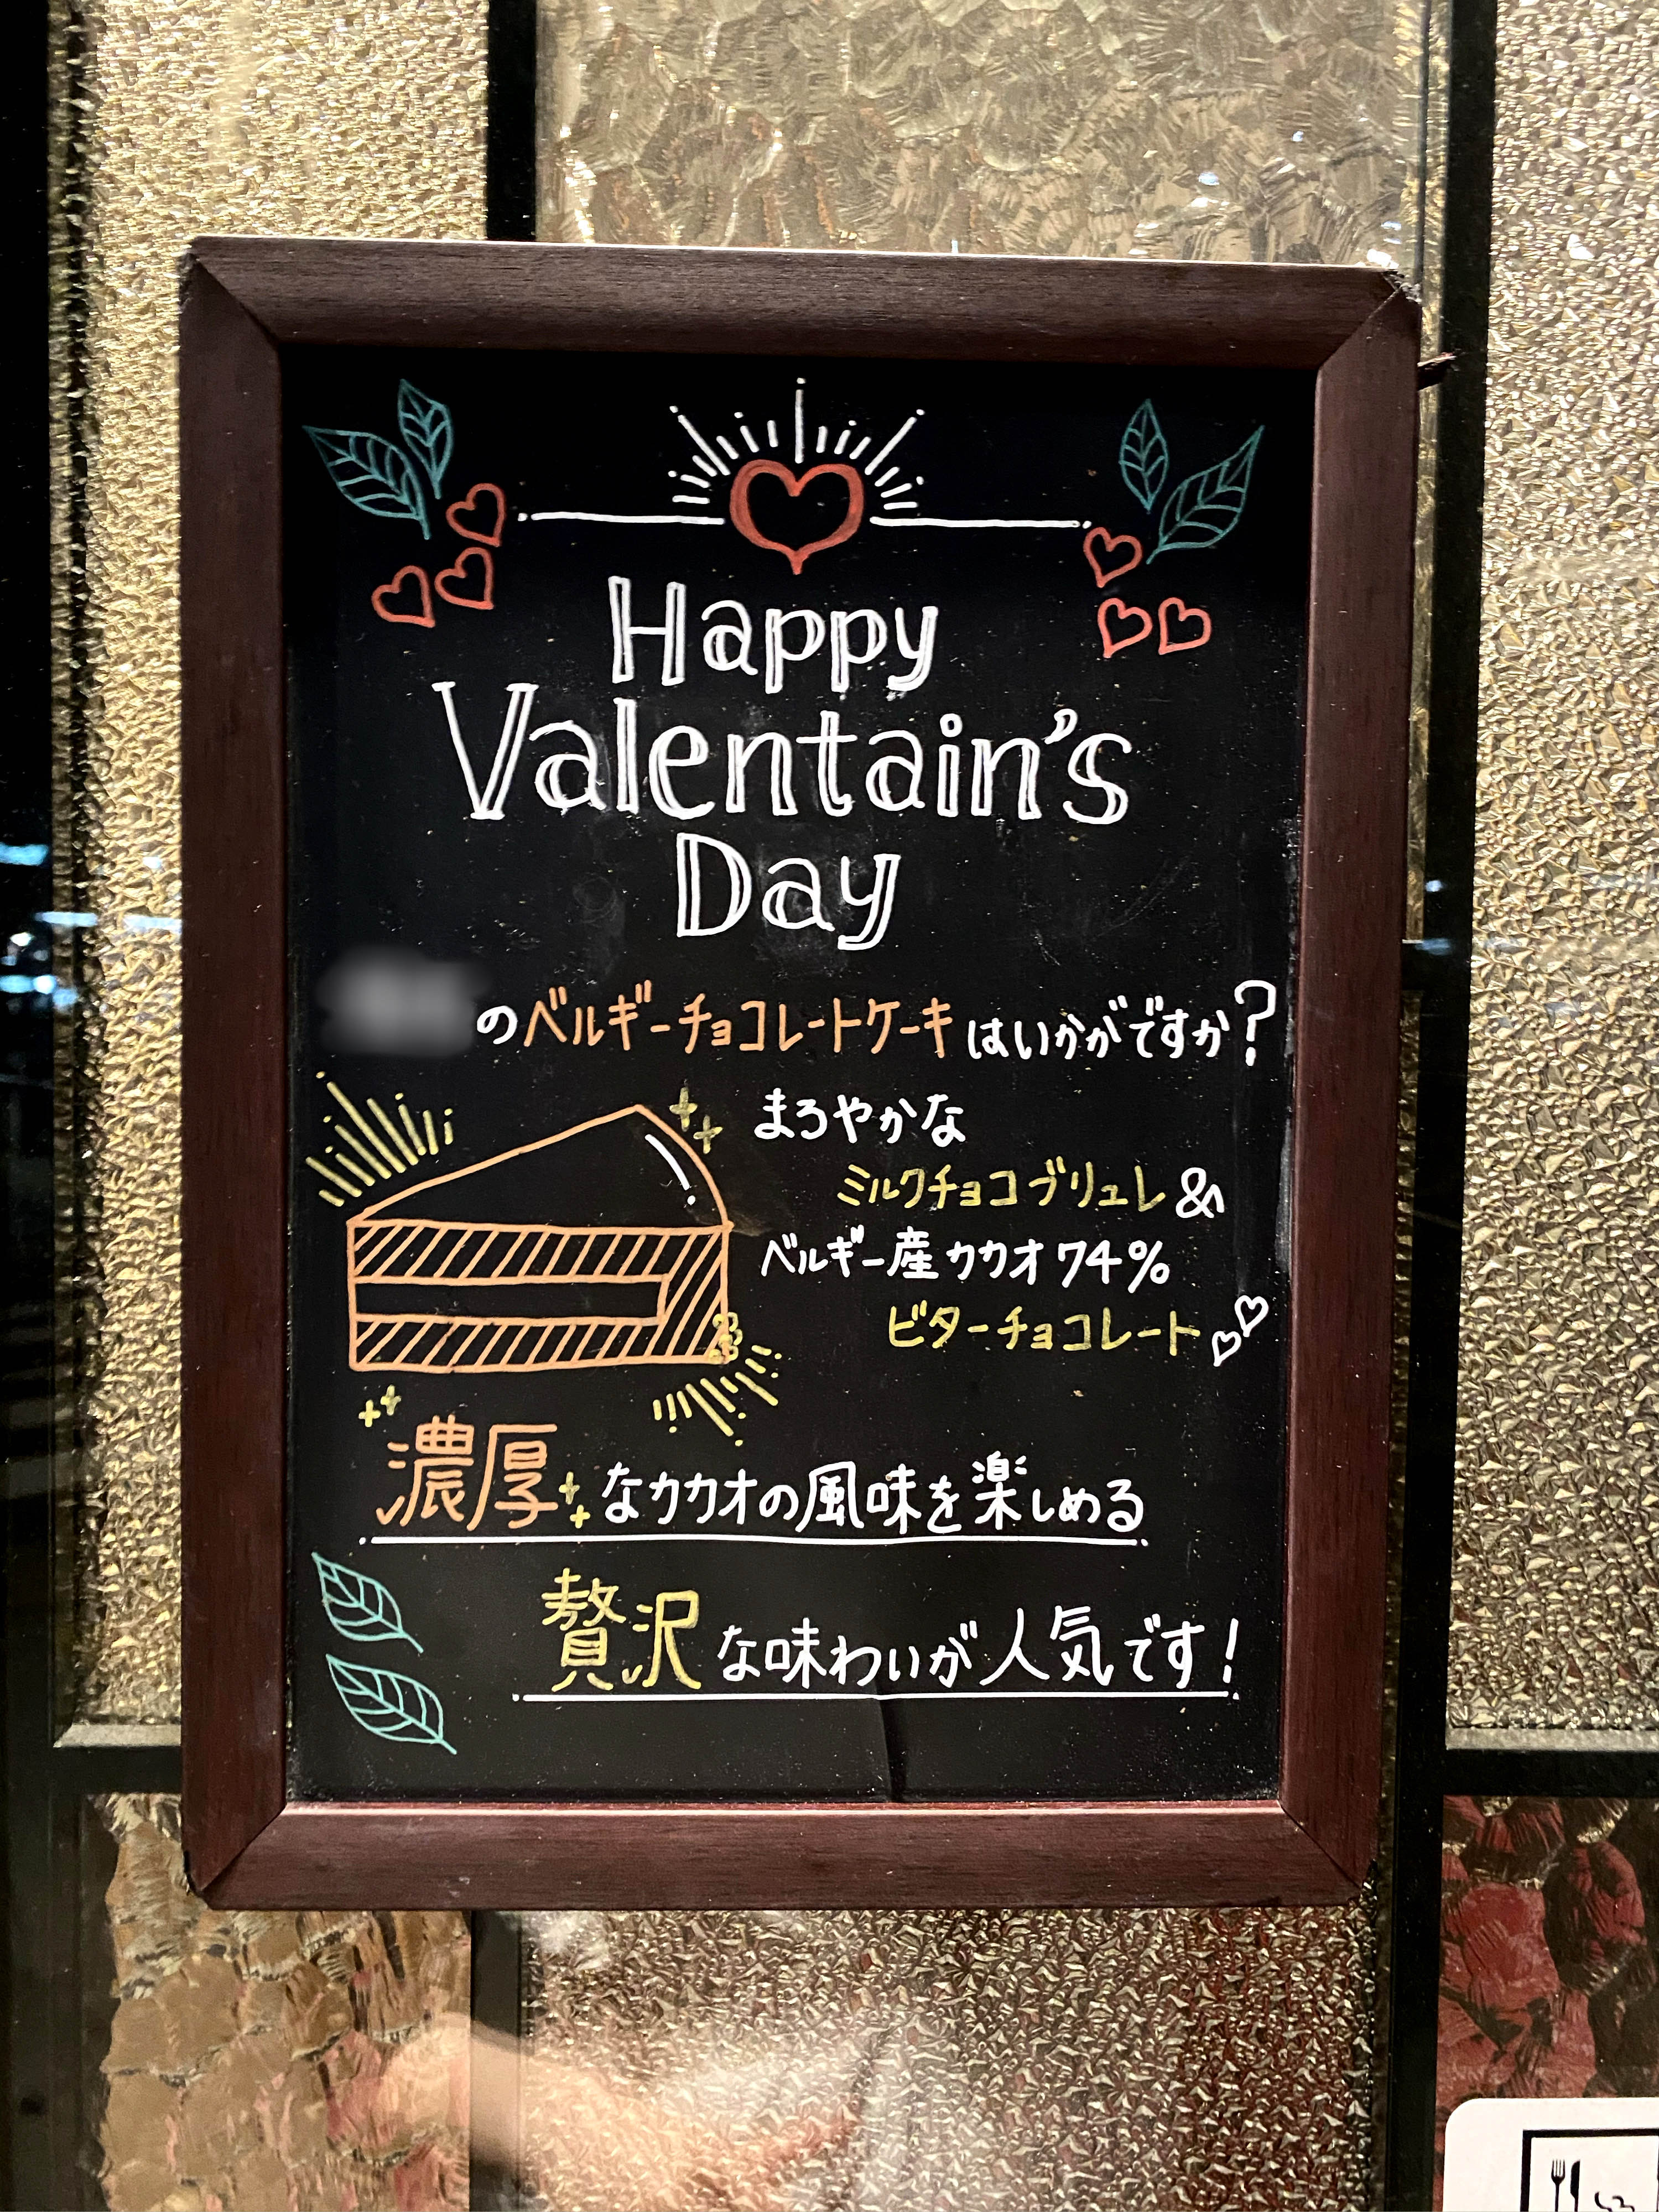 Happy
Valentain's
Day
のベルギーチョコレートケーキはいかがですか?
まろやかな
ミルクチョコブリュレ&
ベルギー産カカオ74%
ビターチョコレート
濃厚なカカオの風味を楽しめる
贅沢な味わいが人気です!